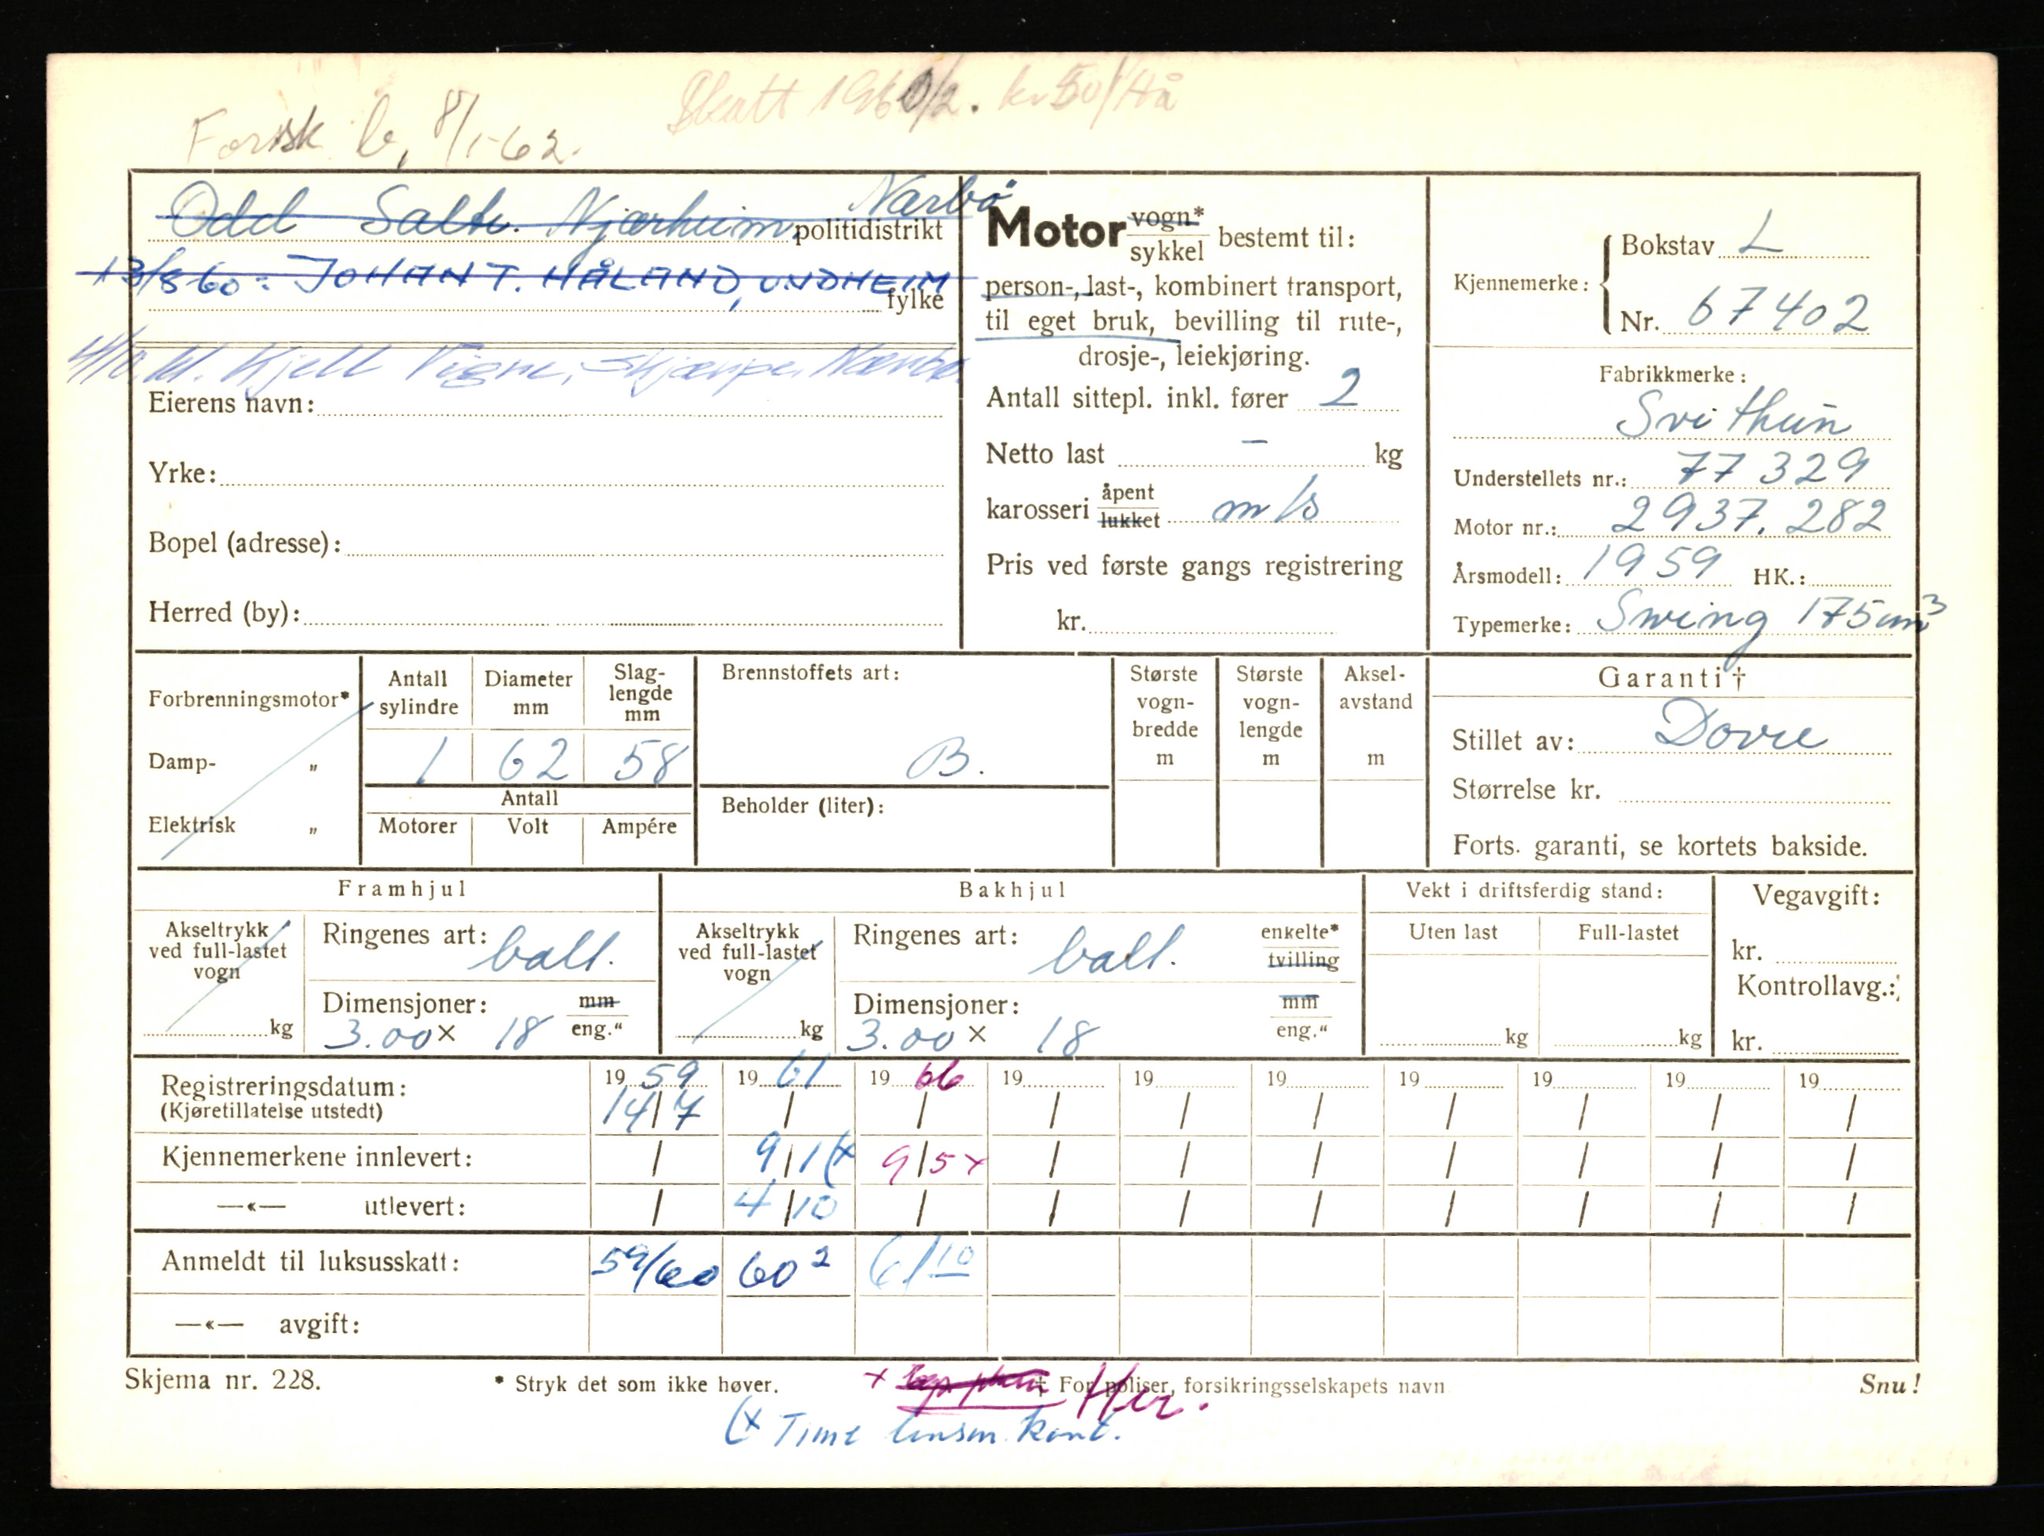 Skatt 1960/2. kr 50/Hå
Forsk b, 8/1-62.
Odd Salte. Njærheim, Nærbö politidistrikt
13/8 60: JOHAN T. HÅLAND, UNDHEIM fylke
Kjell Vigre, Skjærpe, Nærbø
Eierens navn:
Yrke:
Bopel (adresse):
Herred (by):
Motor vogn* sykkel bestemt til:
person-, last-, kombinert transport,
til eget bruk, bevilling til rute-,
drosje-, leiekjøring.
Antall sittepl. inkl. fører 2
Netto last – kg
karosseri åpent lukket m/s
Pris ved første gangs registrering
kr.
Kjennemerke: Bokstav L
Nr. 67402
Fabrikkmerke:
Svithun
Understellets nr.: 77 329
Motor nr.: 2937. 282
Årsmodell: 1959 HK.:
Typemerke: Swing 175cm³
Forbrenningsmotor*
Damp- „
Elektrisk „
Antall sylindre Diameter mm Slag- lengde mm
1 62 58
Antall
Motorer Volt Ampére
Brennstoffets art:
B.
Beholder (liter):
Største vogn- bredde m
Største vogn- lengde m
Aksel- avstand m
Garanti †
Stillet av: Dovre
Størrelse kr.
Forts. garanti, se kortets bakside.
Framhjul
Akseltrykk ved full-lastet vogn kg
Ringenes art: ball.
Dimensjoner: mm eng."
3.00 × 18
Bakhjul
Akseltrykk ved full-lastet vogn kg
Ringenes art: ball. enkelte* tvilling
Dimensjoner: mm eng."
3.00 × 18
Vekt i driftsferdig stand:
Uten last Full-lastet
kg kg
Vegavgift:
kr.
Kontrollavg.:
kr.
Registreringsdatum: 1959 1961 1966 19 19 19 19 19 19 19
(Kjøretillatelse utstedt) 14/7 / / / / / / / / /
Kjennemerkene innlevert: / 9/1 (x 9/5 x / / / / / / /
—«— utlevert: / 4/10 / / / / / / / /
Anmeldt til luksusskatt: 59/60 60² 61/10
—«— avgift:
Skjema nr. 228.
* Stryk det som ikke høver.
x Her.
† For poliser, forsikringsselskapets navn
Snu!
(x Time lensm. kont.